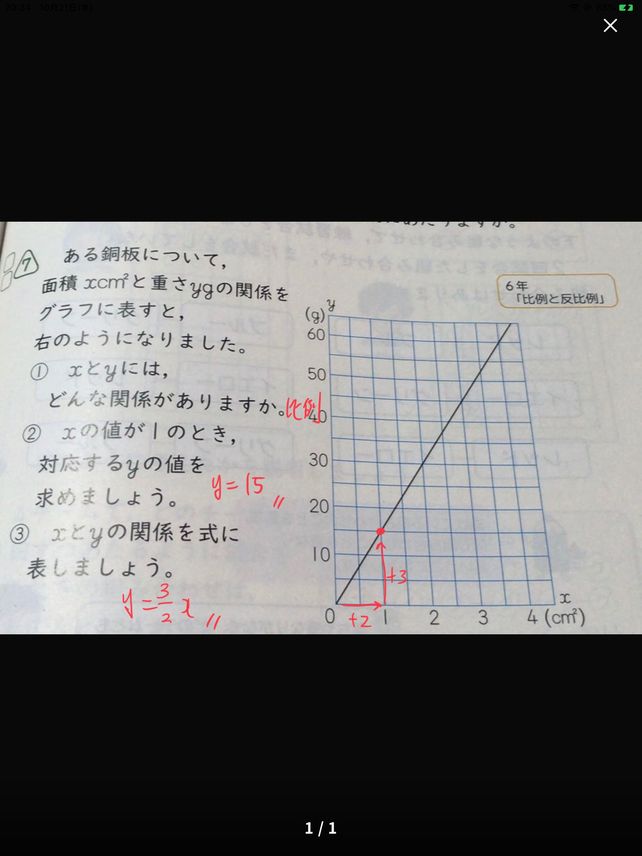 20:34 10月21日(水)
7
ある銅板について,
面積 xcm²と重さygの関係を
グラフに表すと,
右のようになりました。
① xとyには,
どんな関係がありますか。比例
② xの値が1のとき,
対応するyの値を
求めましょう。 y=15〃
③ xとyの関係を式に
表しましょう。
y=3/2 x〃
6年
「比例と反比例」
(g) y
60
50
40
30
20
10
+3
0 +2 1 2 3 4 (cm²) x
1 / 1